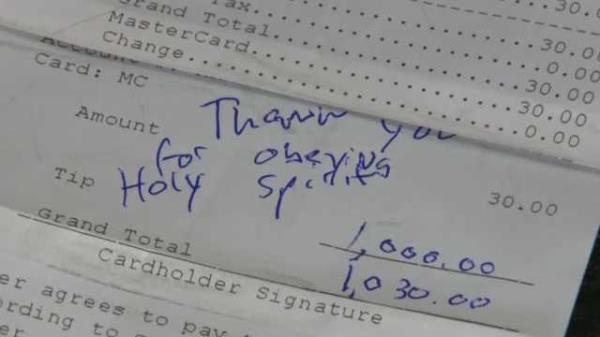 Tax.................
Grand Total................. 30.00
MasterCard................. 0.00
Change................. 30.00
30.00
0.00
Card: MC
Amount
Thank you
for obeying
Holy Spirit
30.00
Tip
1,000.00
Grand Total
1,030.00
Cardholder Signature
er agrees to pay
ording to